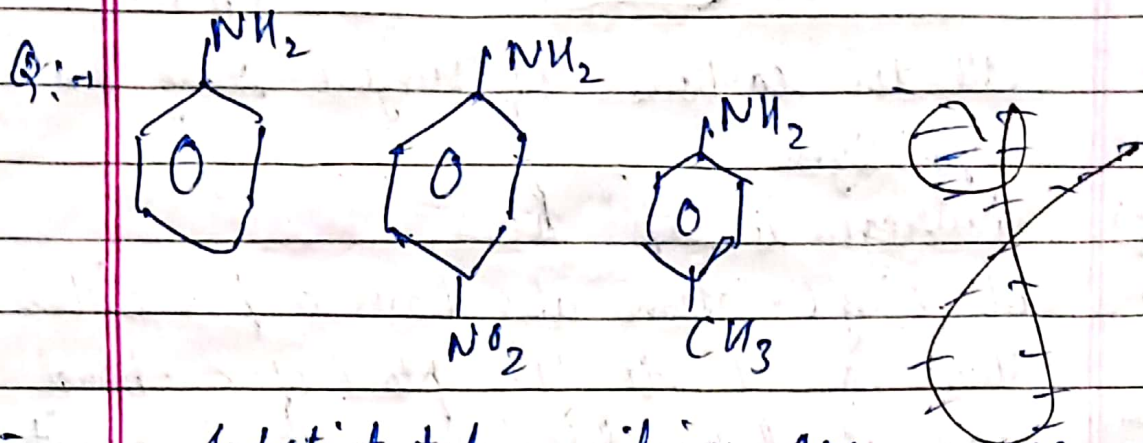 Q:-
NH2 NH2 NH2
NO2 CH3